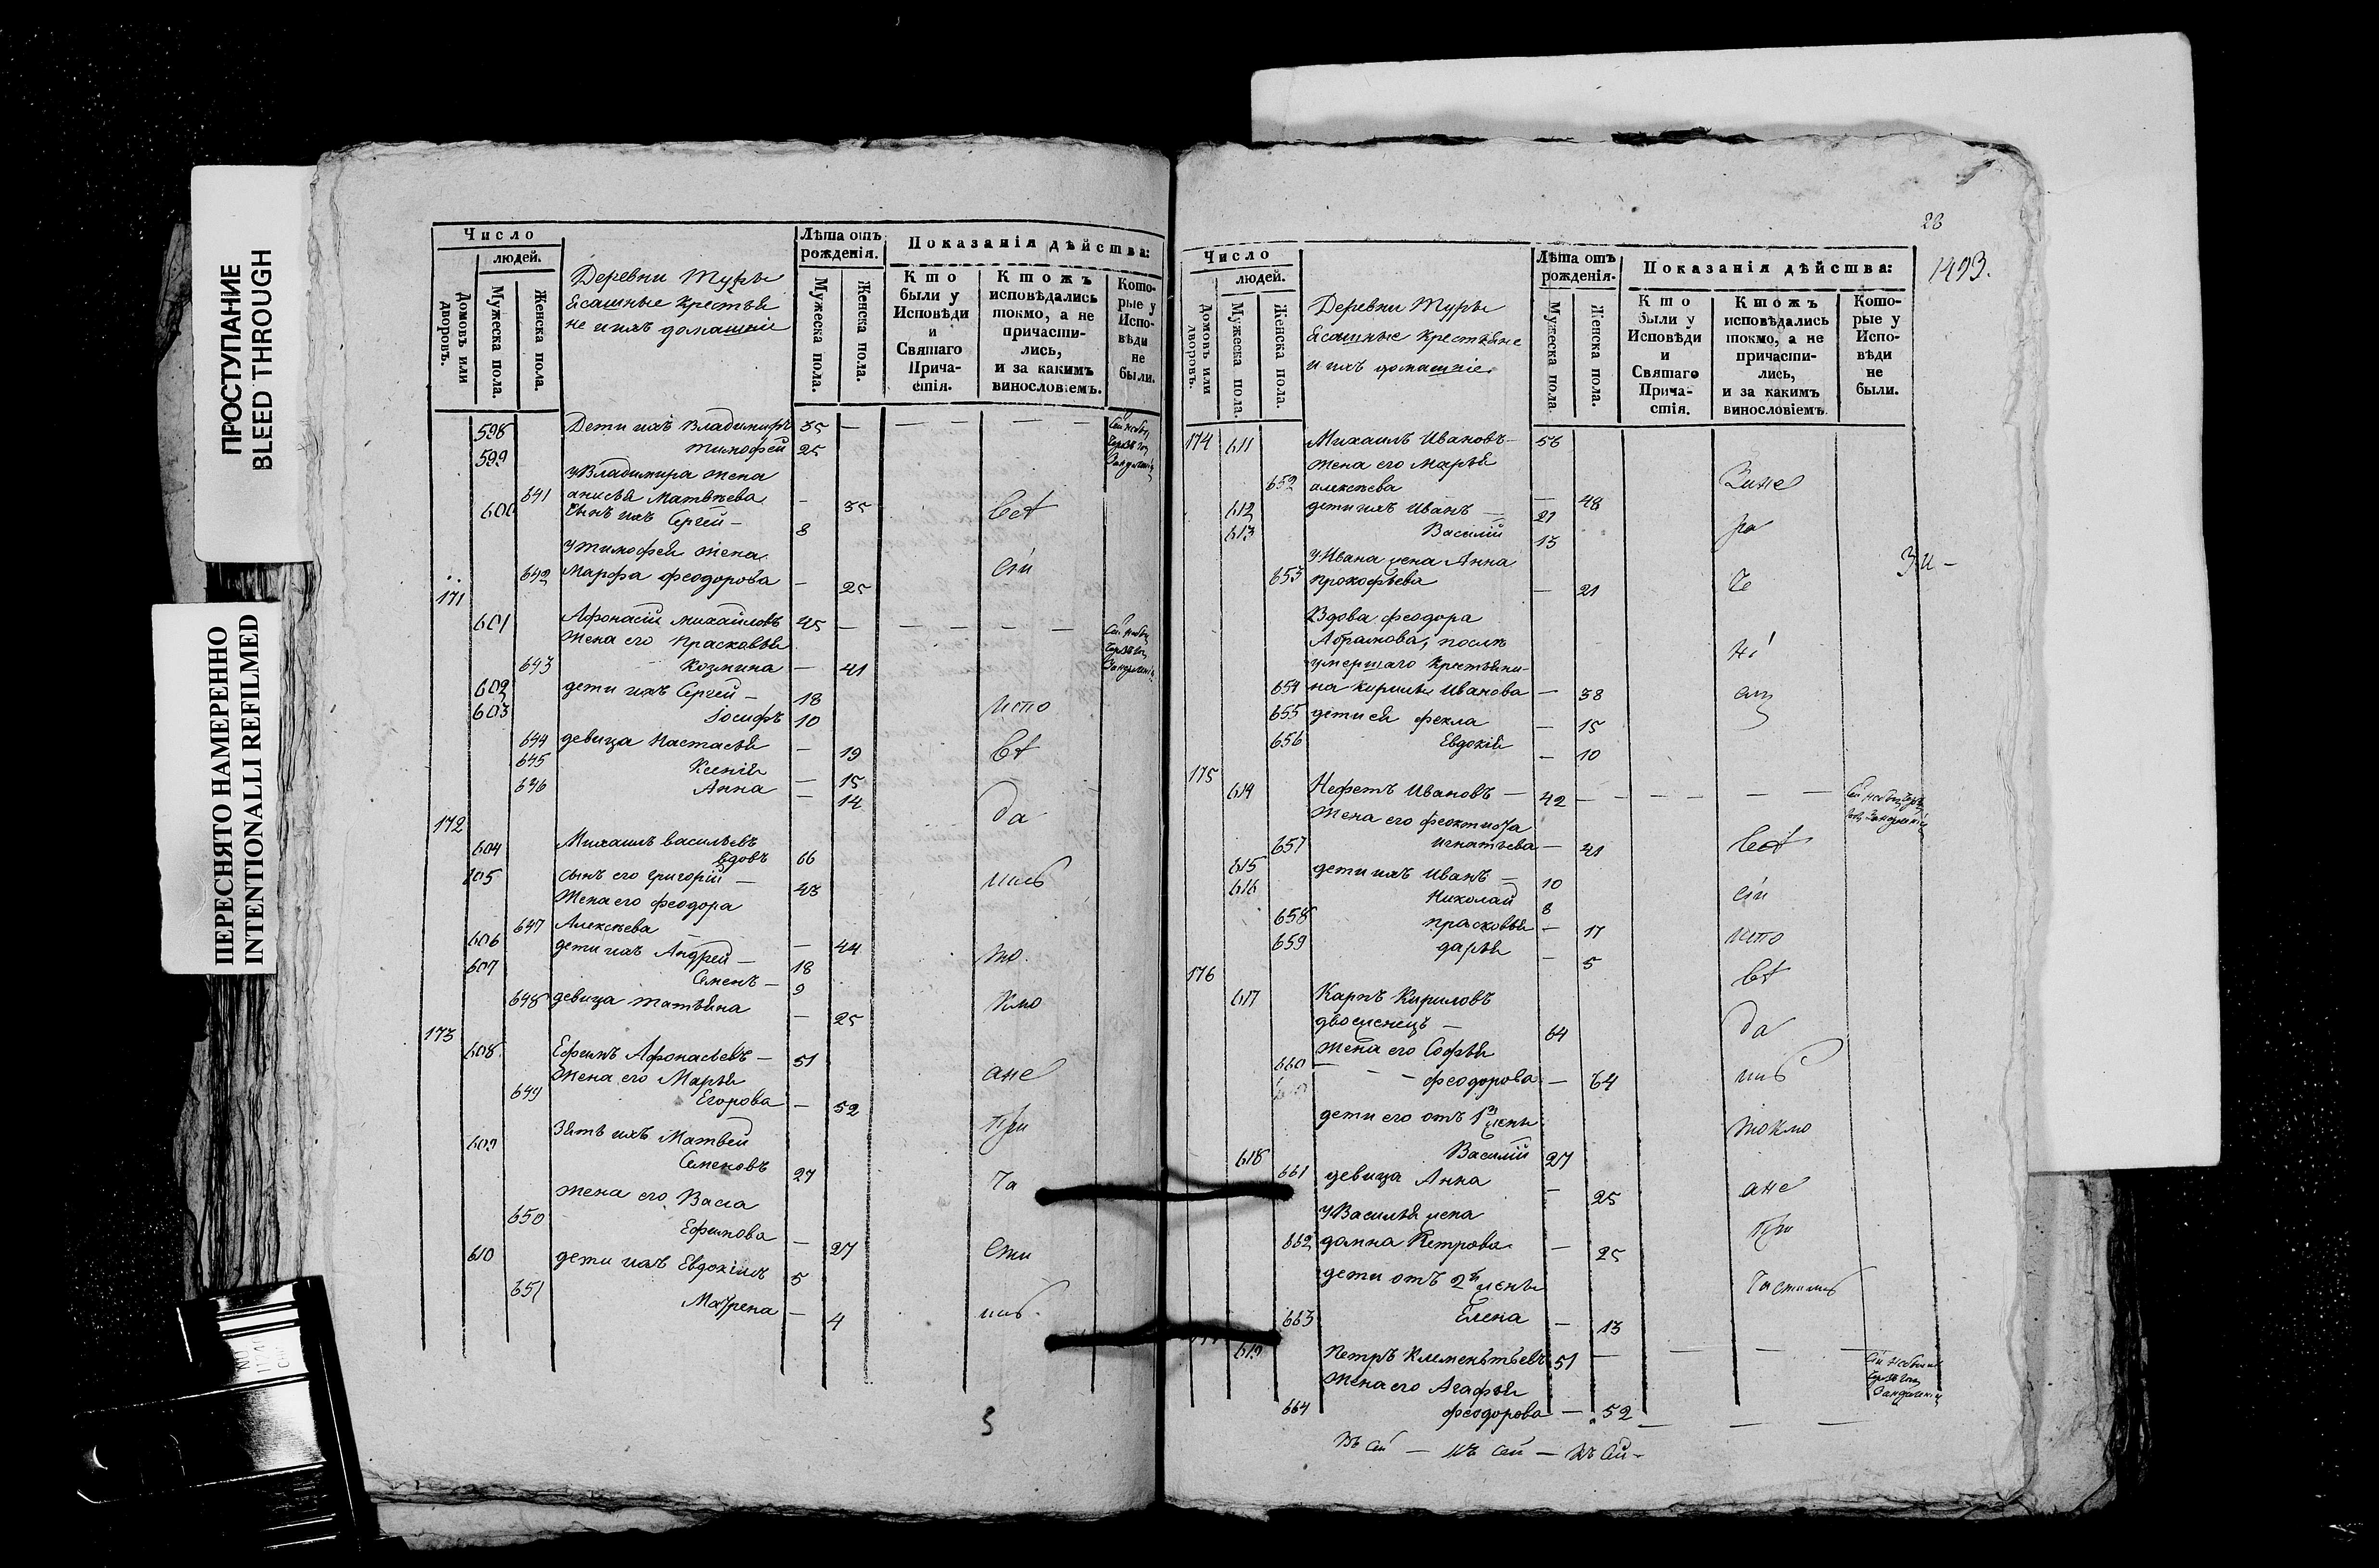 ПРОСТУПАНИЕ
BLEED THROUGH
ПЕРЕСНЯТО НАМЕРЕННО
INTENTIONALLI REFILMED
Число
людей.
Домовъ или дворовъ.
Мужеска пола.
Женска пола.
Деревни Туры
Ясашные Крестья
не и ихъ домашніе
Лѣта отъ рожденія.
Мужеска пола.
Женска пола.
Показанія дѣйства:
Кто были у Исповѣди и Святаго Прича- стія.
Ктожъ исповѣдались токмо, а не причасти- лись, и за какимъ винословіемъ.
Кото- рые у Испо- вѣди не были.
598 Дети ихъ Владимиръ 35 — — — — —
599 Тимофей 25
У Владимира жена
641 анисья Матвѣева — 35
600 сынъ ихъ Сергей — 8
У тимофея жена
642 Марфа феодорова — 25
171
601 Афонасій михайловъ 45 — — — — —
жена его Прасковья
643 Козмина — 41
602 дети ихъ Сергей — 18
603 Іосифъ 10
644 девица Настасья — 19
645 Ксенія — 15
646 Анна — 14
да
172
604 Михаилъ васильевъ
вдовъ 66
605 сынъ его григорій — 43
Жена его феодора
647 Алексеева — 44
606 дети ихъ Андрей — 18
то
607 Семенъ — 9
648 девица татьяна — 25
кмо
173
608 Ефимъ Афонасьевъ — 51
Жена его Марья
ане
649 Егорова — 52
Зять ихъ Матвей
при
609 Семеновъ 27
ча
жена его Васса
650 Ефимова — 27
сти
610 дети ихъ Евдокимъ 5
651 Матрена — 4
3
28
1493.
Число
людей.
Домовъ или дворовъ.
Мужеска пола.
Женска пола.
Деревни Туры
Ясашные Крестьяне
и ихъ домашніе
Лѣта отъ рожденія.
Мужеска пола.
Женска пола.
Показанія дѣйства:
Кто были у Исповѣди и Святаго Прича- стія.
Ктожъ исповѣдались токмо, а не причасти- лись, и за какимъ винословіемъ.
Кото- рые у Испо- вѣди не были.
174 611 Михаилъ Ивановъ — 56
жена его Марья
652 алексеева — 48
612 дети ихъ Иванъ — 21
613 Василій 13
У Ивана жена Анна
653 прокофьева — 21
Вдова феодора
Абрамова, послѣ
умершаго крестьяни-
654 на кирилы Иванова — 38
655 дети ея фекла — 15
656 Евдокія — 10
175
614 Нефетъ Ивановъ — 42 — — — — —
Жена его феоктиста
657 игнатьева — 41
615 дети ихъ Иванъ — 10
616 Николай 8
658 прасковья — 17
659 дарья — 5
176
617 Карпъ Кириловъ
двоеженецъ — 64
да
жена его Софья
660 феодорова — 64
дети его отъ 1й жены
токмо
618 Василій 27
661 девица Анна — 25
ане
У Василья жена
662 домна Петрова — 25
при
дети отъ 2й жены
частились
663 Елена — 13
619 Петръ Клементьевъ 51 — — — —
Жена его Агафья
664 феодорова — 52 — — —